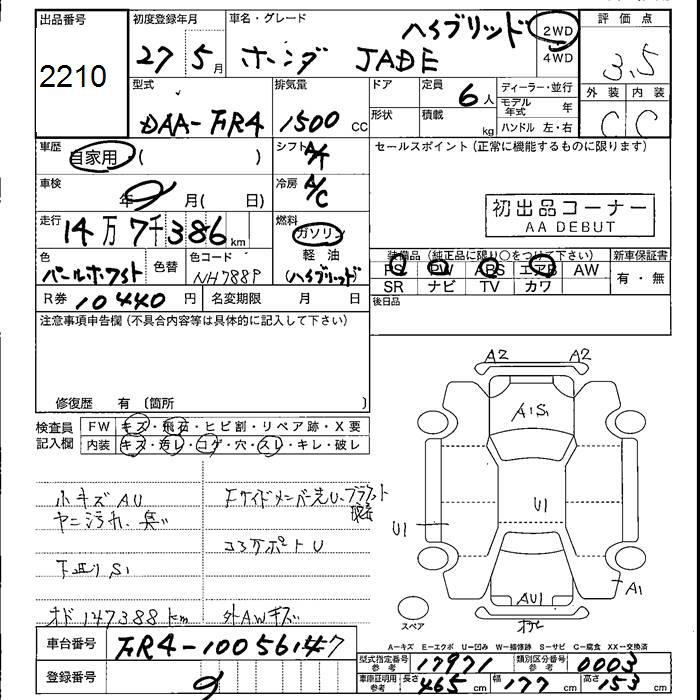 出品番号 初度登録年月 車名・グレード 評価点
2210 27 5月 ホンダ JADE ハイブリッド 2WD 4WD 3.5
外装 内装
C C
型式 排気量 ドア 定員 ディーラー・並行
DAA-FR4 1500 CC 6人 モデル年式 年
形状 積載 kg ハンドル 左・右
車歴 自家用・( ) シフト セールスポイント(正常に機能するものに限ります)
車検 年 月( 日) 冷房 A/C
初出品コーナー
AA DEBUT
走行 14万7千386km 燃料 ガソリン
軽油
(ハイブリッド)
色 パールホワイト 色替 色コード NH788P
装備品(純正品に限り○をつけて下さい) 新車保証書
PS PW ABS エアB AW 有・無
SR ナビ TV カワ
R券 10440円 名変期限 月 日 後日品
注意事項申告欄(不具合内容等は具体的に記入して下さい)
修復歴 有 〔箇所 〕
検査員記入欄 FW キズ・飛石・ヒビ割・リペア跡・X要
内装 キズ・汚レ・コゲ・穴・スレ・キレ・破レ
小キズ AU
ヤニ汚れ、臭い
下廻り S1
オド 147388 km
FサイドメンバーU、ブラケット
コアサポート U
外AWキズ
A2 A2
A1S1
U1
U1
A1
AU1
スペア
車台番号 FR4-1005617
登録番号
A-キズ E-エクボ U-凹み W-補修跡 S-サビ C-腐食 XX-交換済
型式指定番号 参考 17971 類別区分番号 参考 0003
車庫証明用 参考 長さ 465cm 幅 177cm 高さ 153cm